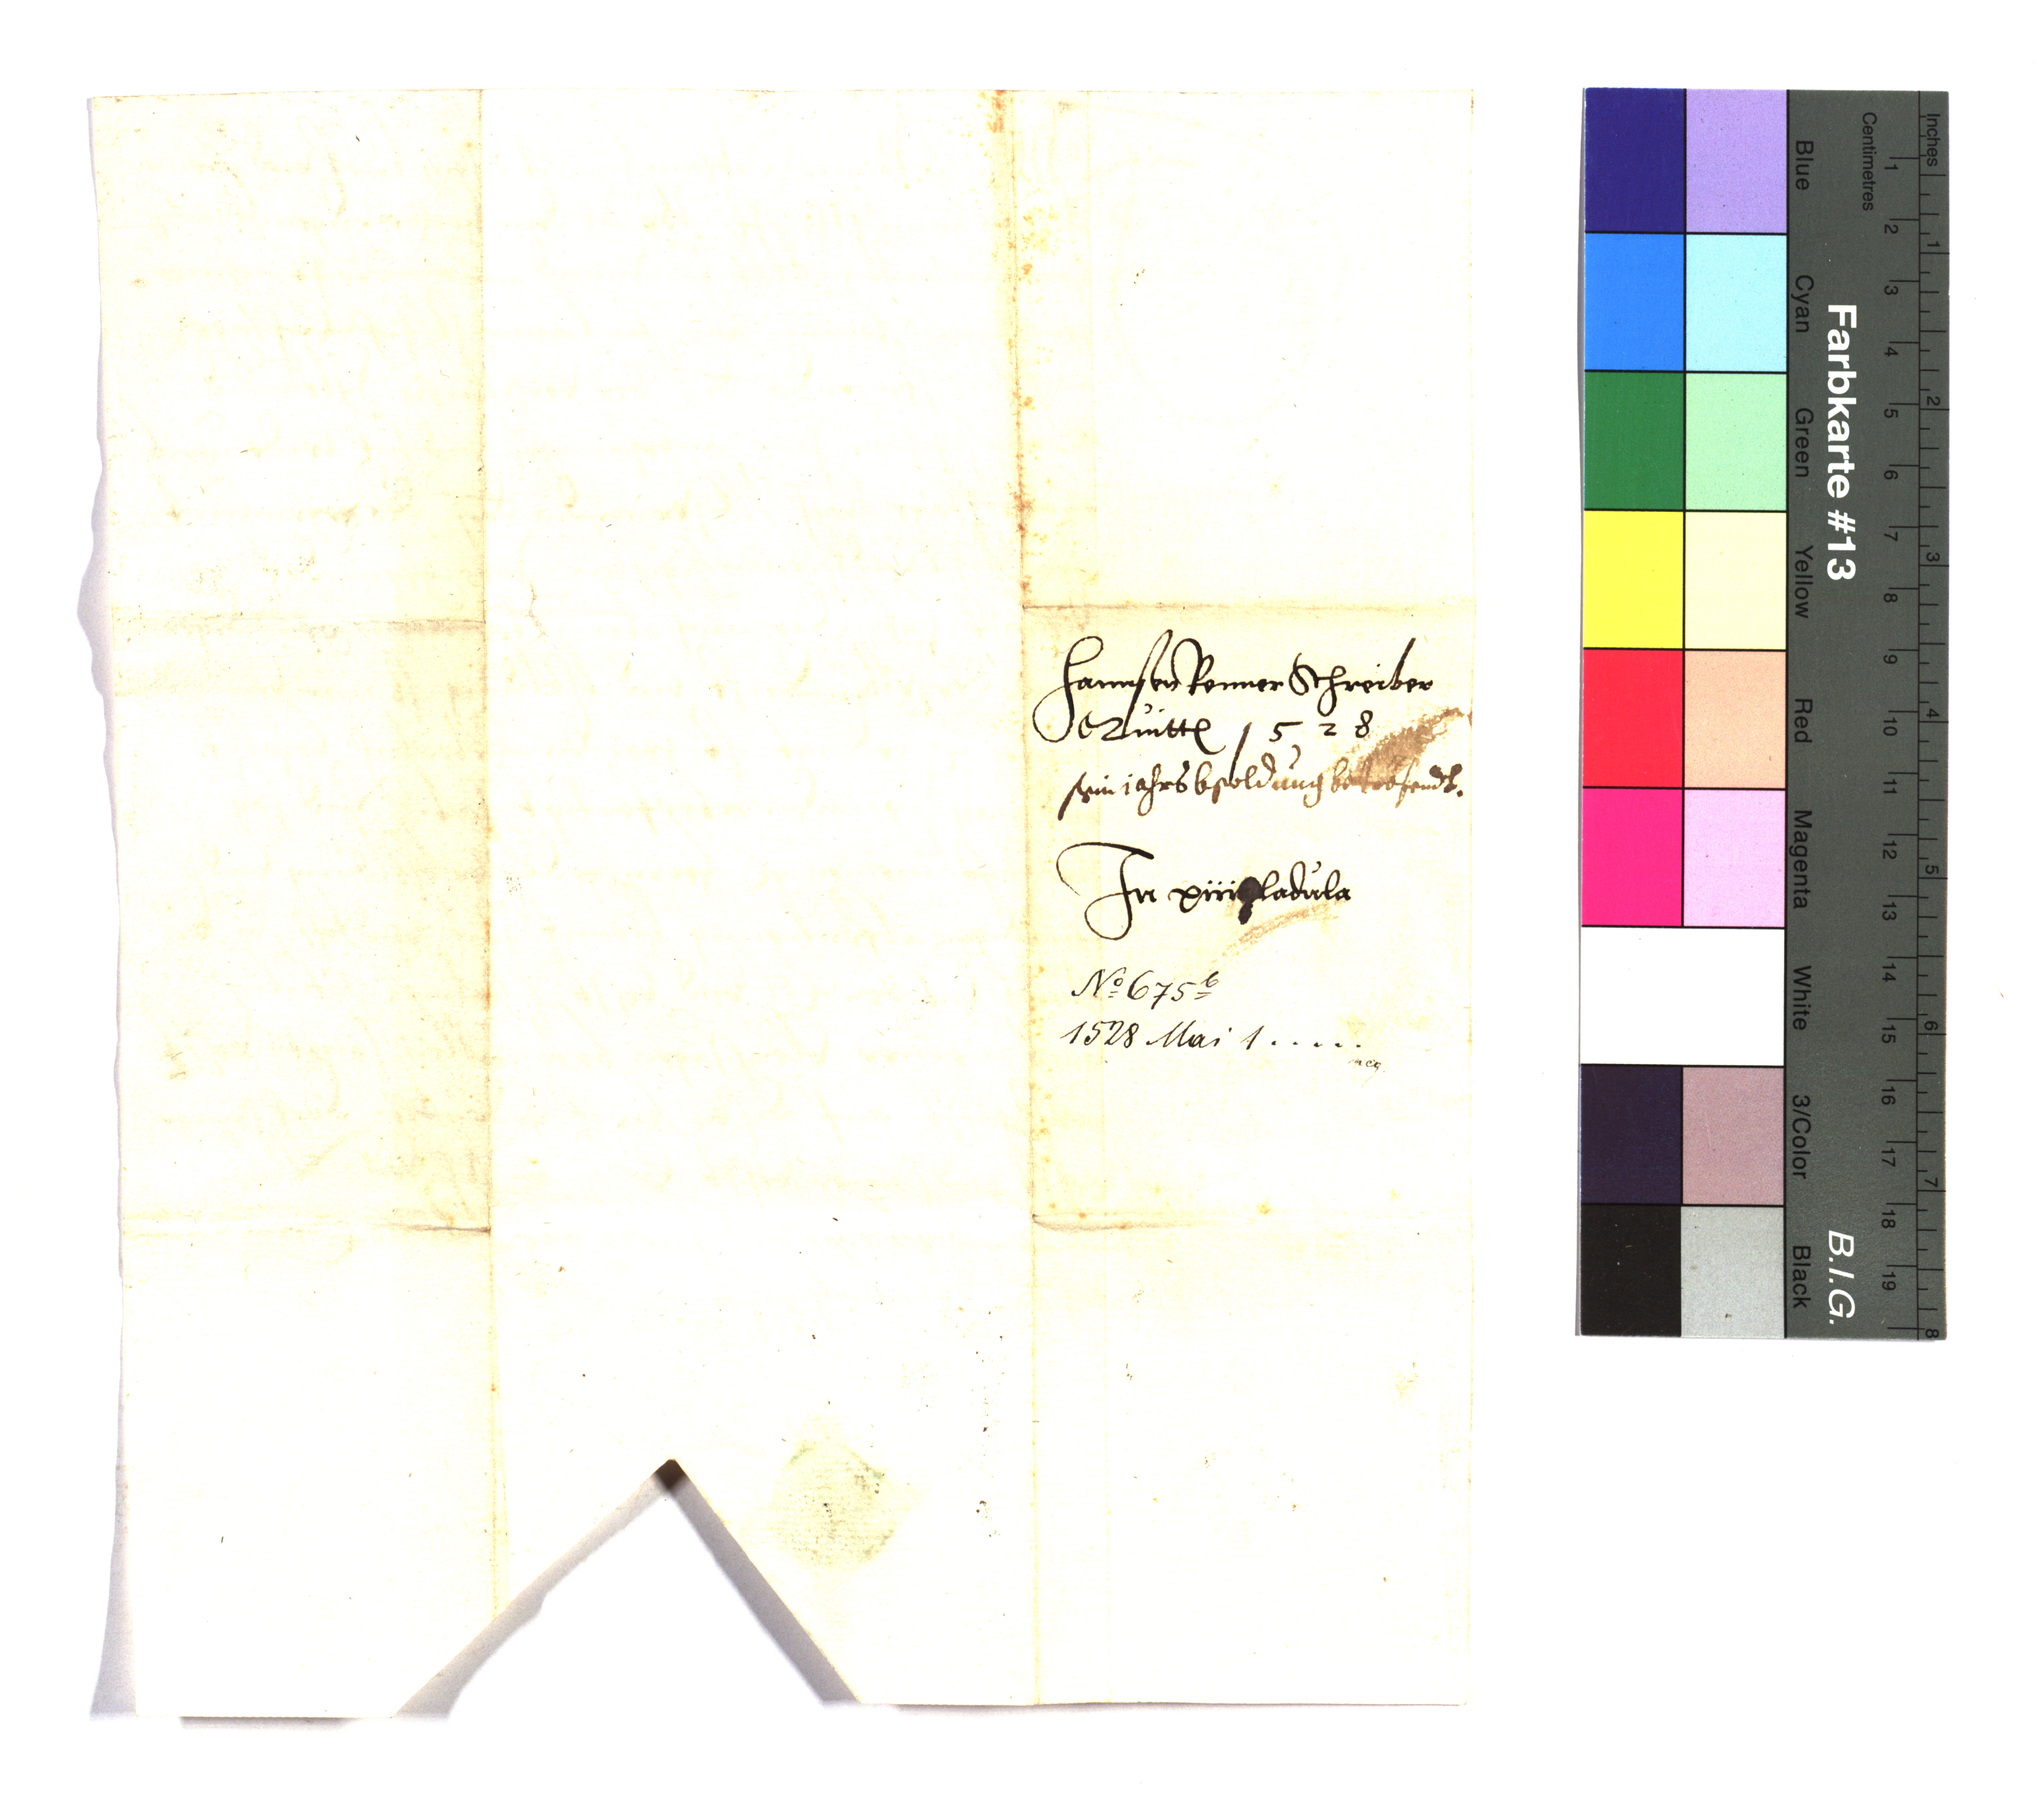 Hannsen Renner Schreiber
Quitt 1528
sein jahrs bsoldung betrefendt.
In xiiij ladula
No 675b
1528 Mai 1.....
Inches
Centimetres
Blue
Cyan
Green
Yellow
Red
Magenta
White
3/Color
Black
Farbkarte #13
B.I.G.
1 2 3 4 5 6 7 8 9 10 11 12 13 14 15 16 17 18 19
1 2 3 4 5 6 7 8